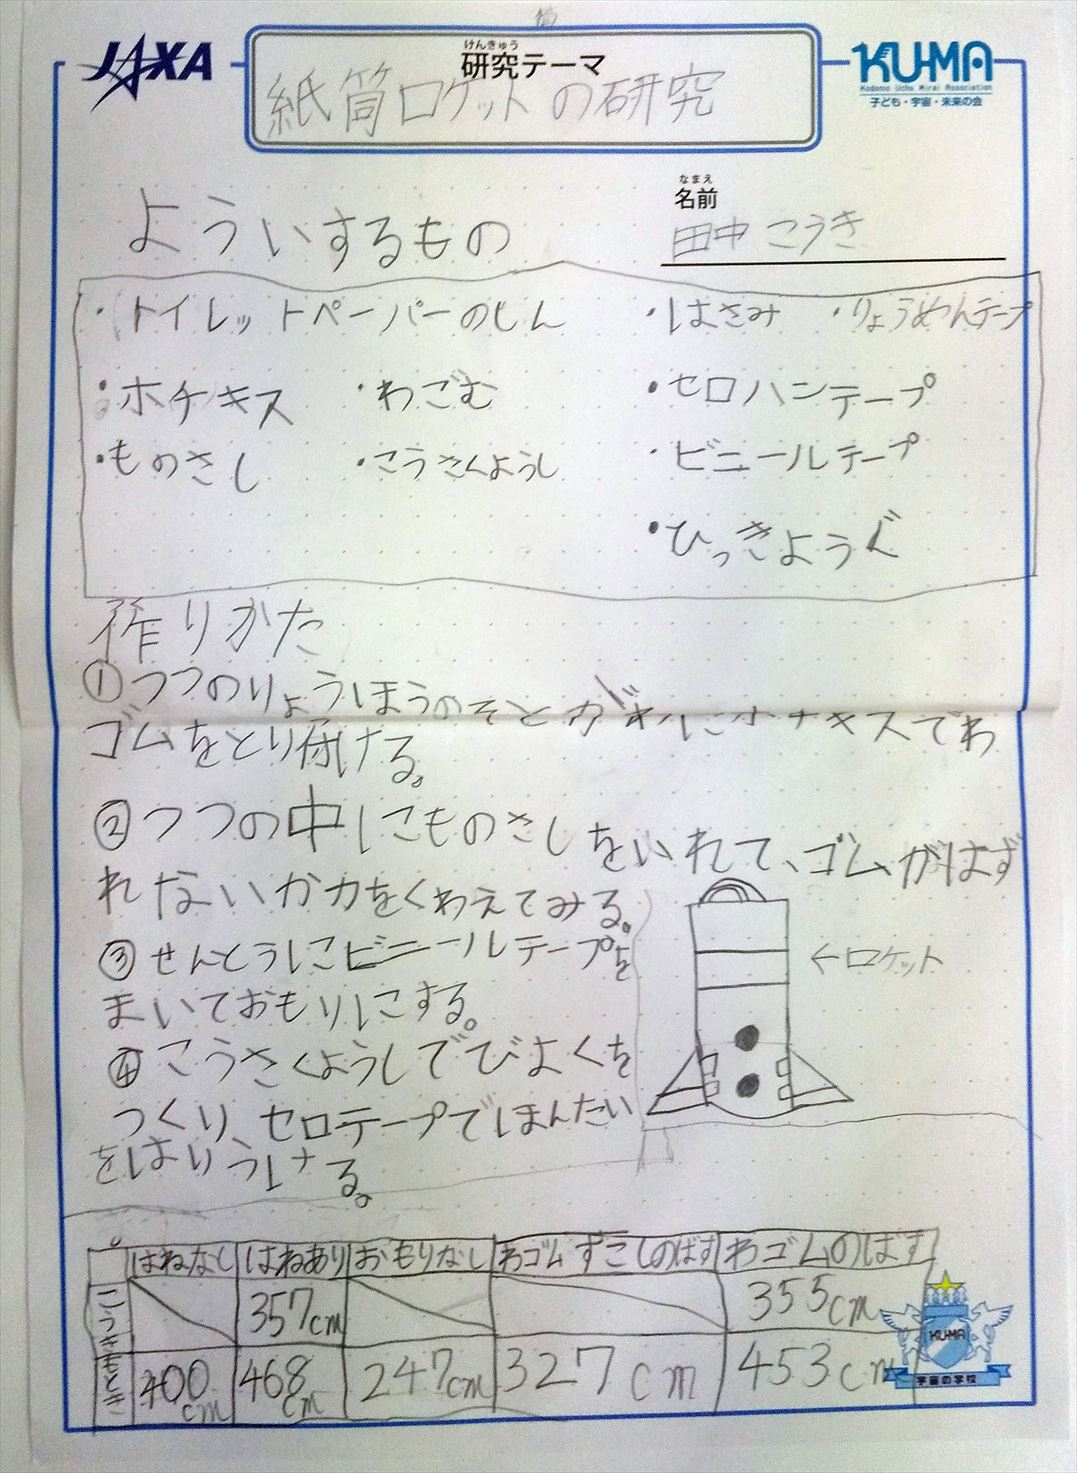 筒
JAXA
けんきゅう
研究テーマ
紙筒ロケットの研究
KU-MA
Kodomo Uchu Mirai Association
子ども・宇宙・未来の会
なまえ
名前
田中 こうき
よういするもの
・トイレットペーパーのしん ・はさみ ・りょうめんテープ
・ホチキス ・わごむ ・セロハンテープ
・ものさし ・こうさくようし ・ビニールテープ
・ひっきようぐ
作りかた
①つつのりょうほうのそとがわにホチキスでわ
ゴムをとり付ける。
②つつの中にものさしをいれて、ゴムがはず
れないか力をくわえてみる。
③せんとうにビニールテープを
まいておもりにする。
←ロケット
④こうさくようしでびよくを
つくり、セロテープでほんたい
をはりつける。
はねなし はねあり おもりなし わゴムすこしのばす わゴムのばす
357cm 355cm
400cm 468cm 247cm 327cm 453cm
KU-MA
宇宙の学校